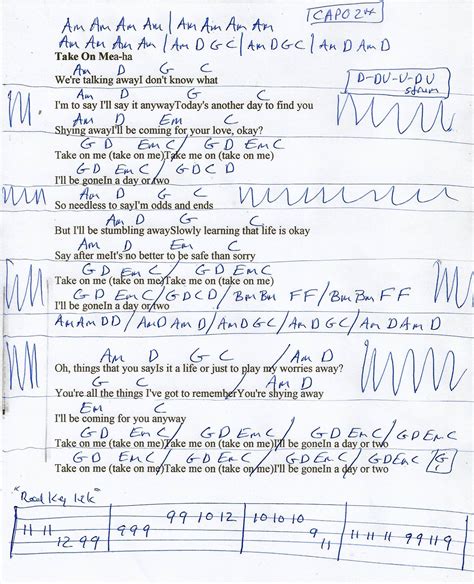 Am Am Am Am / Am Am Am Am
CAPO 2
Am Am Am Am / Am D G C / Am D G C / Am D Am D
Take On Mea-ha
Am D G C
We're talking awayI don't know what
D-DU-U-DU
strum
Am D G C
I'm to say I'll say it anywayToday's another day to find you
Am D Em C
Shying awayI'll be coming for your love, okay?
G D Em C / G D Em C
Take on me (take on me)Take me on (take on me)
G D Em C / G D C D
I'll be goneIn a day or two
Am D G C
So needless to sayI'm odds and ends
Am D G C
But I'll be stumbling awaySlowly learning that life is okay
Am D Em C
Say after meIt's no better to be safe than sorry
G D Em C / G D Em C
Take on me (take on me)Take me on (take on me)
G D Em C / G D C D / Bm Bm F F / Bm Bm F F
I'll be goneIn a day or two
Am Am D D / Am D Am D / Am D G C / Am D G C / Am D Am D
Am D G C
Oh, things that you sayIs it a life or just to play my worries away?
G C Am D
You're all the things I've got to rememberYou're shying away
Em C
I'll be coming for you anyway
G D Em C / G D Em C / G D Em C / G D Em C
Take on me (take on me)Take me on (take on me)I'll be goneIn a day or two
G D Em C / G D Em C / G D Em C / G D Em C G
Take on me (take on me)Take me on (take on me)I'll be goneIn a day or two
"Road Key
11 11 12 9 9 9 9 9 9 9 10 12 10 10 10 9 11 11 11 11 9 9 11 9